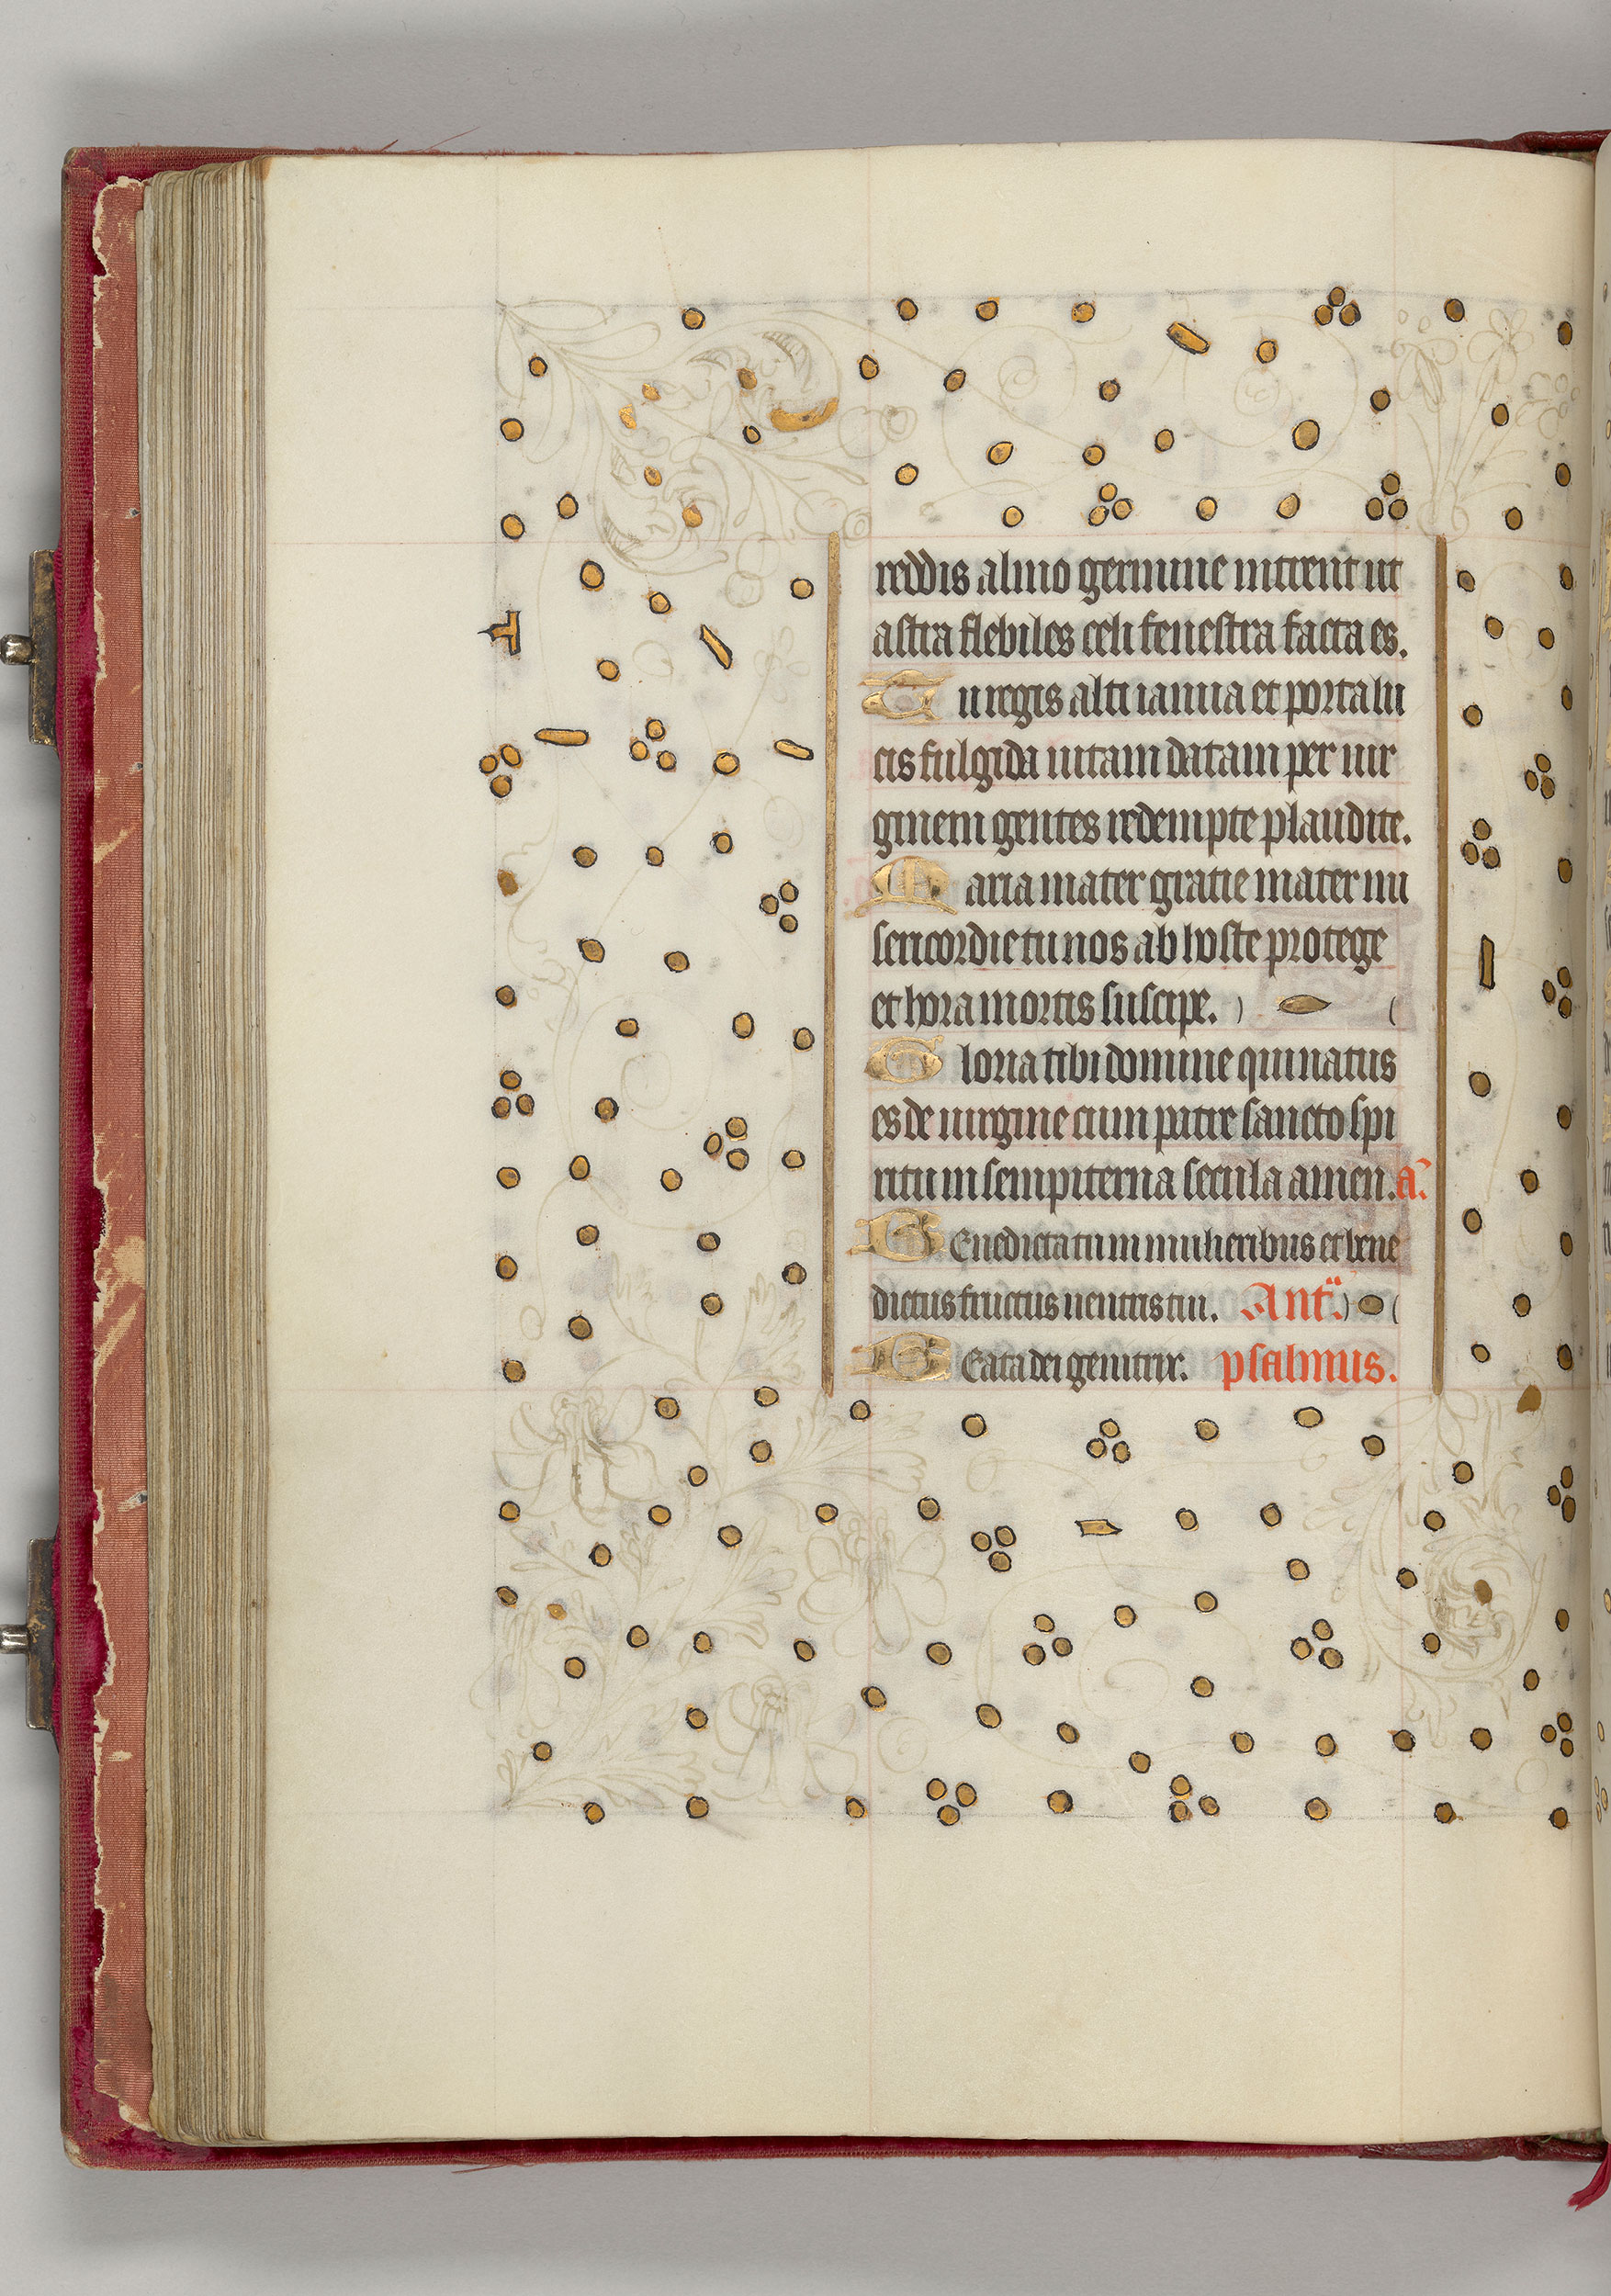 reddis almo germine intrent ut
astra flebiles celi fenestra facta es.
Tu regis alti ianua et porta lu
cis fulgida uitam datam per uir
ginem gentes redempte plaudite.
Maria mater gratie mater mi
sericordie tu nos ab hoste protege
et hora mortis suscipe.
Gloria tibi domine qui natus
es de uirgine cum patre sancto spi
ritu in sempiterna secula amen. a.
Benedicta tu in mulieribus et bene
dictus fructus uentris tui. Ant.
Beata dei genitrix. psalmus.